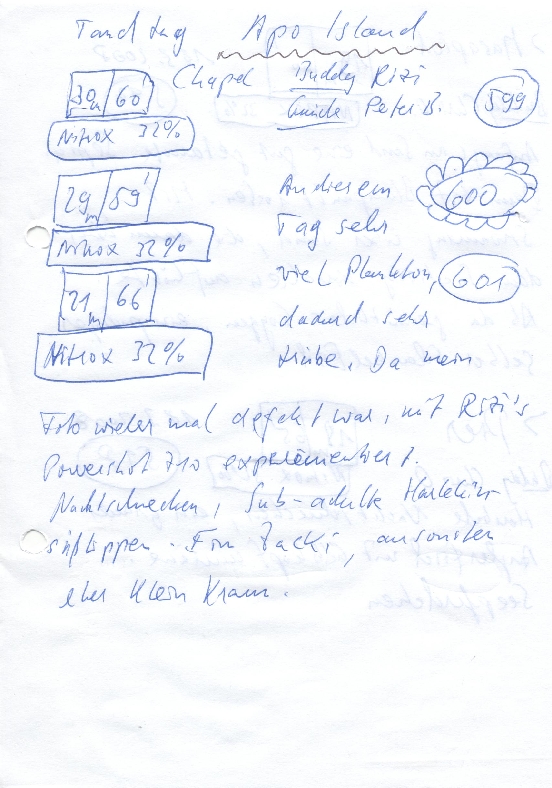 Tauchtag Apo Island
30m 60'
Chapel Buddy Rizi
Guide Peter B. 599
Nitrox 32%
29m 59'
An diesem 600
Nitrox 32%
Tag sehr
viel Plankton, 601
21m 66'
dadurch sehr
Nitrox 32%
trübe. Da mein
Foto wieder mal defekt war, mit Rizi's
Powershot 710 experimentiert.
Nacktschnecken, Sub-adulte Harlekin-
süßlippen. Ein Zacki, ansonsten
eher Klein Kram.